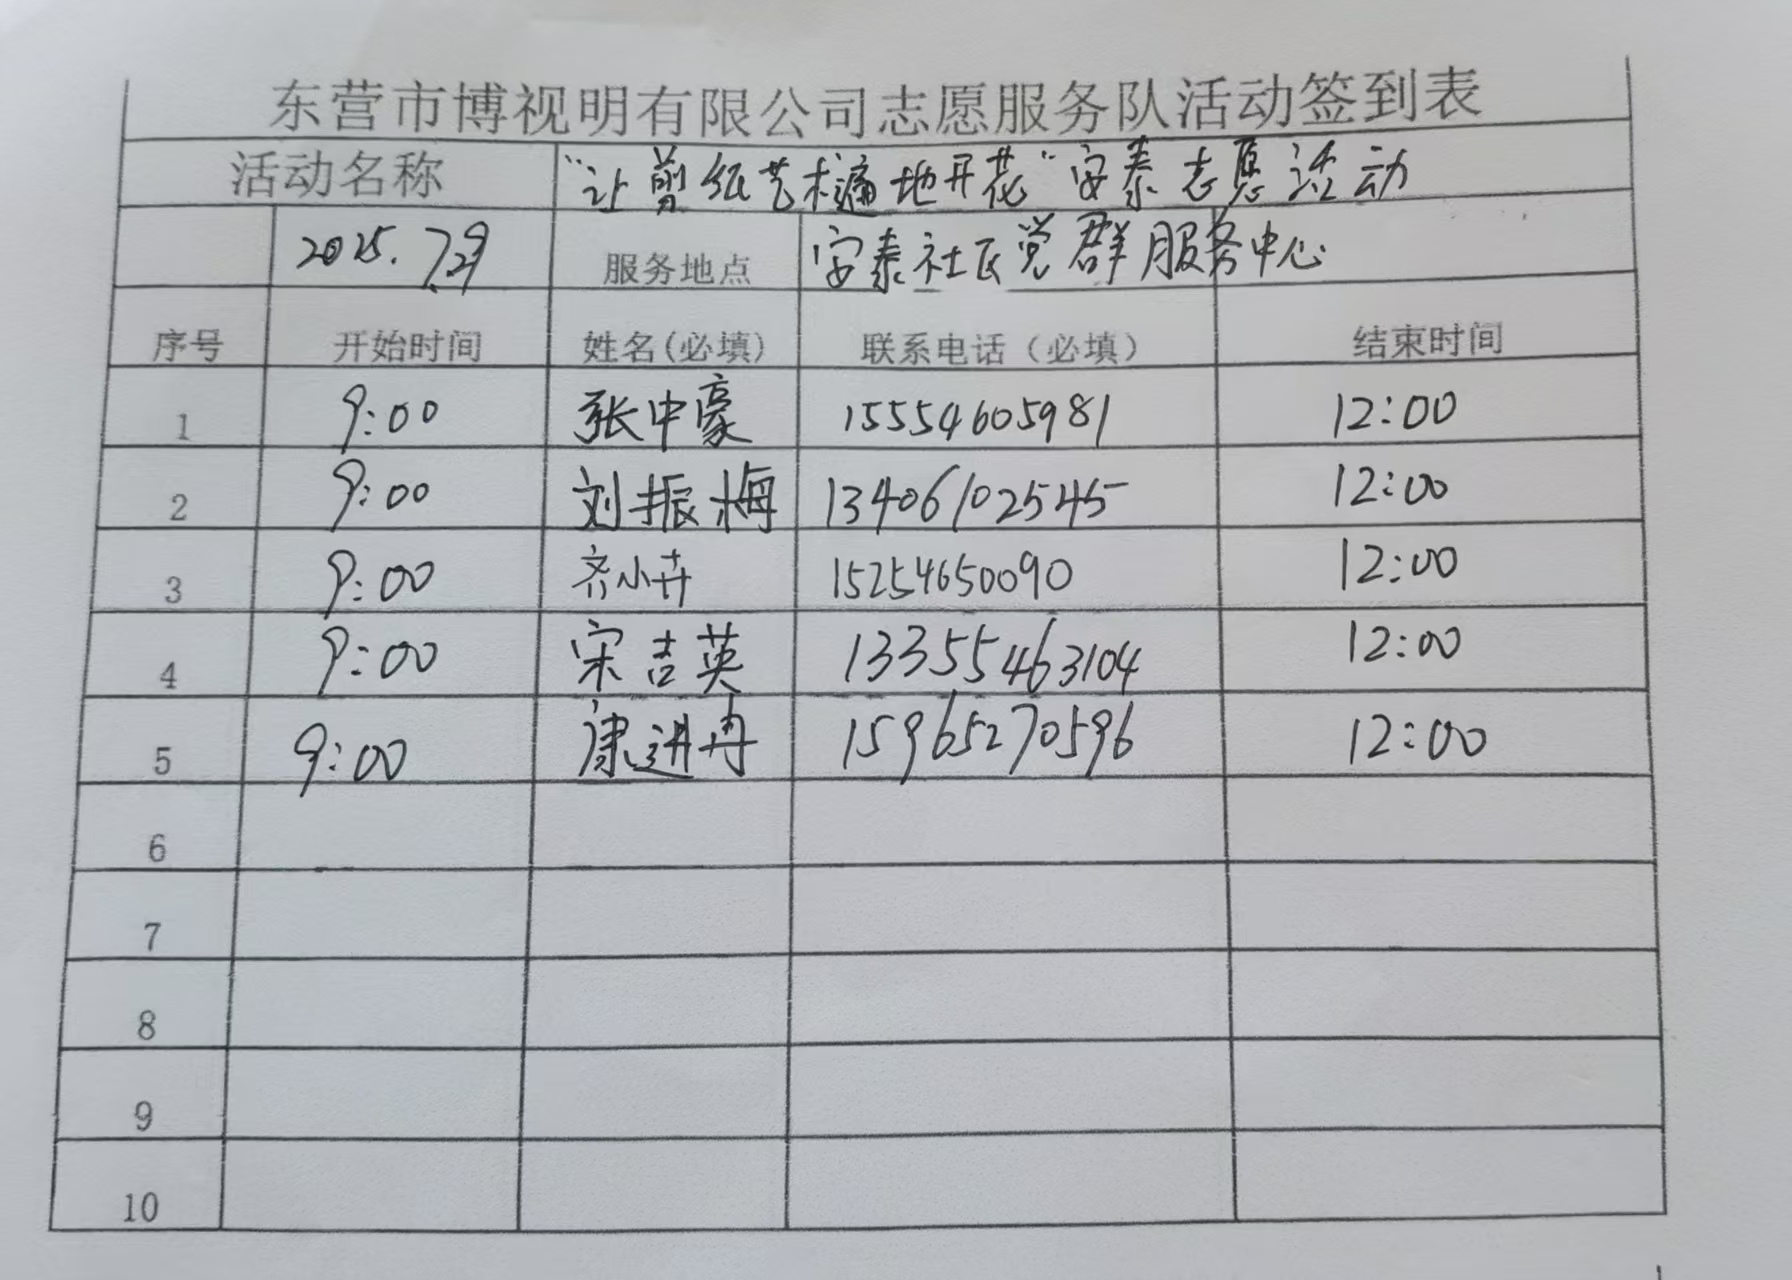 东营市博视明有限公司志愿服务队活动签到表
活动名称 “让剪纸艺术遍地开花”安泰志愿活动
2025.7.29 服务地点 安泰社区党群服务中心
序号 开始时间 姓名(必填) 联系电话（必填） 结束时间
1 9:00 张中豪 15554605981 12:00
2 9:00 刘振梅 13406102545 12:00
3 9:00 齐小卉 15254650090 12:00
4 9:00 宋吉英 13355463104 12:00
5 9:00 康进冉 15965270596 12:00
6
7
8
9
10